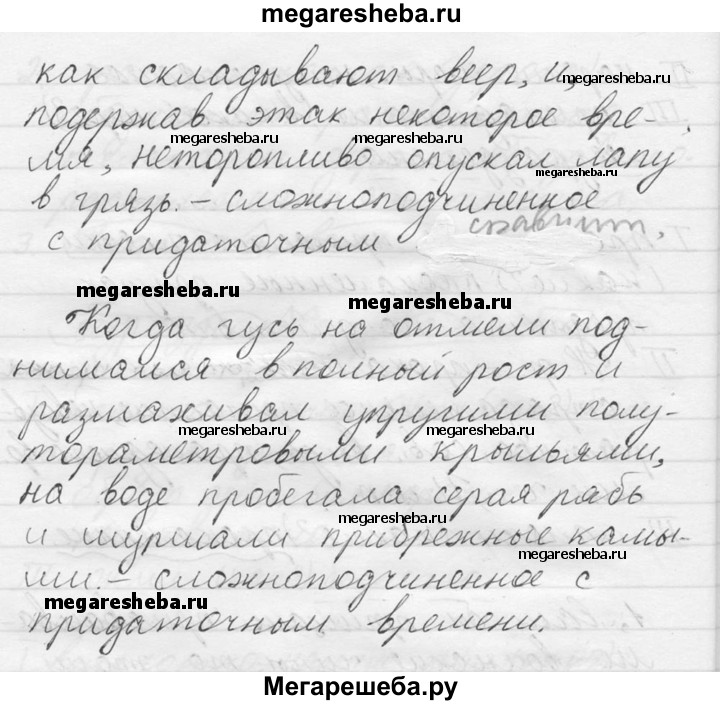 megaresheba.ru
как складывают веер, и,
megaresheba.ru
подержав этак некоторое вре-
megaresheba.ru
megaresheba.ru
мя, неторопливо опускал лапу
megaresheba.ru
в грязь. – сложноподчиненное
с придаточным
megaresheba.ru
megaresheba.ru
Когда гусь на отмели под-
нимался в полный рост и
размахивал упругими полу-
megaresheba.ru
megaresheba.ru
тораметровыми крыльями,
на воде пробегала серая рябь
megaresheba.ru
и шуршали прибрежные камы-
megaresheba.ru
ши. – сложноподчиненное с
megaresheba.ru
придаточным времени.
Мегарешеба.ру